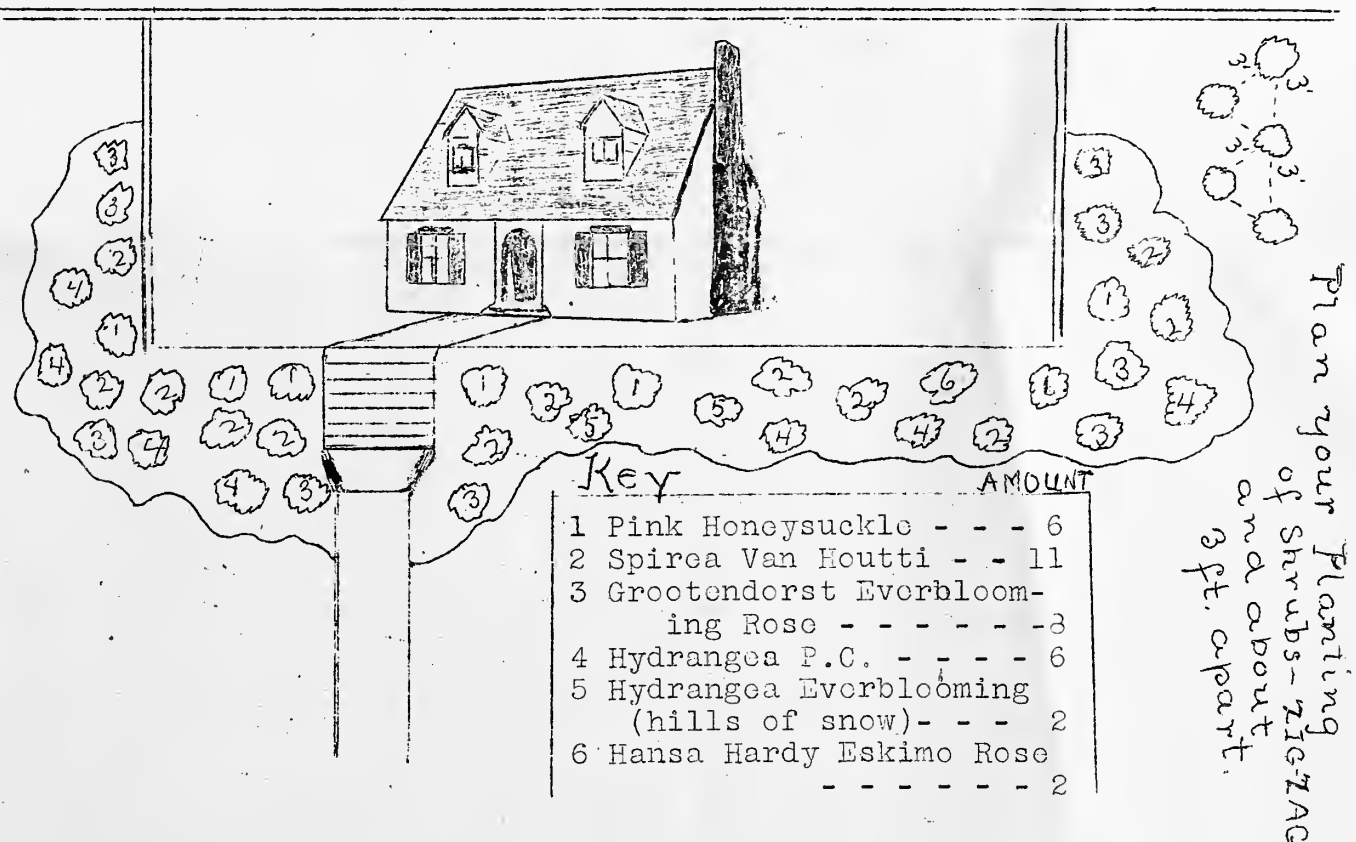 3' 3'
3' 3'
3 3
3 3
2 2
4 1 2
1 3
4 2 2 1 1 1 2 1 5 2 2 6 6 4
3 4 2 2 2 5 4 4 2 3
4 3 3
Plan your Planting
of Shrubs - ZIG-ZAG
and about
3 ft. apart.
Key AMOUNT
1 Pink Honeysuckle - - - 6
2 Spirea Van Houtti - - 11
3 Grootendorst Everbloom-
ing Rose - - - - - -8
4 Hydrangea P.C. - - - - 6
5 Hydrangea Everblooming
(hills of snow)- - - 2
6 Hansa Hardy Eskimo Rose
- - - - - - 2